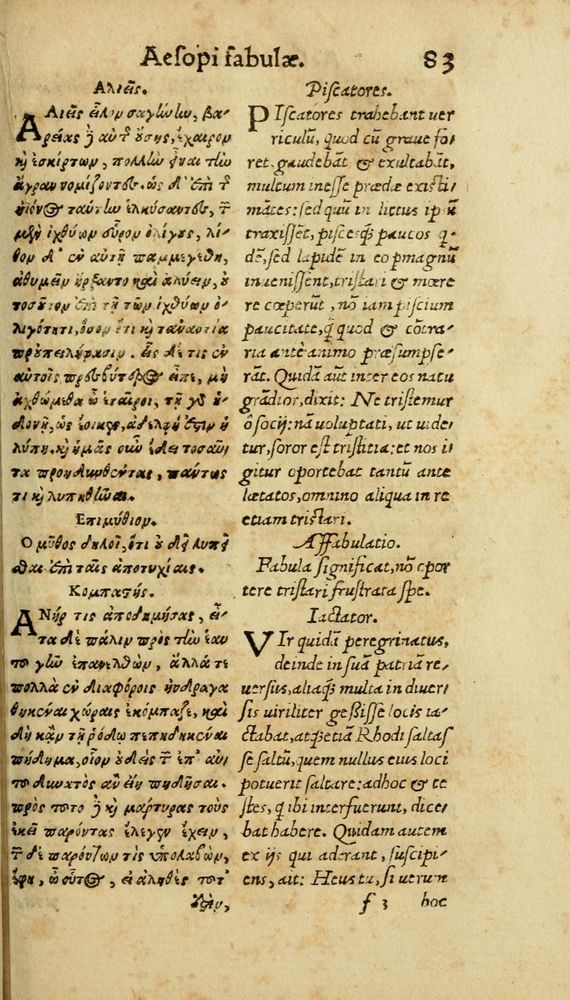 Aesopi fabulæ. 83
Αλιεῖς.
ΑΛιεῖς εἷλκον σαγήνην, βα-
ρείας δὲ αὐτῆς οὔσης, ἔχαιρον
καὶ ἐσκίρτων, πολλὴν εἶναι τὴν
ἄγραν νομίζοντες. ὡς δ' ἐπὶ τῆς
ἠϊόνος ταύτην ἑλκύσαντες, τῶν
μὲν ἰχθύων εὗρον ὀλίγους, λί-
θον δ' ἐν αὐτῇ παμμεγέθη,
ἀθυμεῖν ἤρξαντο καὶ ἀλύειν, οὐ
τοσοῦτον ἐπὶ τῇ τῶν ἰχθύων ὀ-
λιγότητι, ὅσον ὅτι καὶ τἀναντία
προϋπειλήφασιν. εἷς δέ τις ἐν
αὐτοῖς πρεσβύτερος εἶπε, μὴ
ἀχθώμεθα ὦ ἑταῖροι, τῇ γὰρ ἡ-
δονῇ, ὡς ἔοικεν, ἀδελφή ἐστιν ἡ
λύπη. καὶ ἡμᾶς οὖν ἔδει τοσαῦ-
τα προησθέντας, πάντως
τι καὶ λυπηθῆναι.
Επιμύθιον.
Ο μῦθος δηλοῖ, ὅτι οὐ δεῖ λυπεῖ-
σθαι ἐπὶ ταῖς ἀποτυχίαις.
Κομπαστής.
ΑΝήρ τις ἀποδημήσας, εἶ-
τα δὲ πάλιν πρὸς τὴν ἑαυ
τοῦ γῆν ἐπανελθὼν, ἄλλά τε
πολλὰ ἐν διαφόροις ἠνδραγα
θηκέναι χώραις ἐκόμπαζε, καὶ
δὴ κἂν τῇ ῥόδῳ πεπηδηκέναι
πήδημα, οἷον οὐδεὶς τῶν ἐπ' αὐ-
τοῦ δυνατὸς ἂν εἴη πηδῆσαι.
πρὸς τοῦτο δὲ καὶ μάρτυρας τοὺς
ἐκεῖ παρόντας ἔλεγεν ἔχειν,
τῶν δὲ παρόντων τὶς ὑπολαβὼν,
ἔφη, ὦ οὗτος, εἰ ἀληθὲς τοῦτ'
ἔστιν,
Piscatores.
PIscatores trahebant uer
riculũ, quod cũ graue fo-
ret, gaudebãt & exultabãt,
multum inesse prædæ existi-
mãtes: sed quũ in littus ipsũ
traxissẽt, pisces q́; paucos q-
dẽ, sed lapidẽ in eo pmagnũ
inuenissent, tristari & mœre
re cœperũt, nõ iam piscium
paucitate, q̃ quod & cõtra-
ria antè animo præsumpse-
rãt. Quidã aũt inter eos natu
grãdior, dixit: Ne tristemur
ô socij: nã uoluptati, ut uide-
tur, soror est tristitia: et nos i-
gitur oportebat tantũ ante
lætatos, omnino aliqua in re
etiam tristari.
Affabulatio.
Fabula significat, nõ opor
tere tristari frustrata spe.
Iactator.
VIr quidã peregrinatus,
deinde in suã patriã re-
uersus, aliaq́; multa in diuer-
sis uiriliter gessisse locis ia-
ctabat, atq́; etiã Rhodi saltas
se saltũ, quem nullus eius loci
potuerit saltare: ad hoc & te
stes, q ibi interfuerunt, dice-
bat habere. Quidam autem
ex ijs qui aderant, suscipi-
ens, ait: Heus tu, si uerum
f 3 hoc